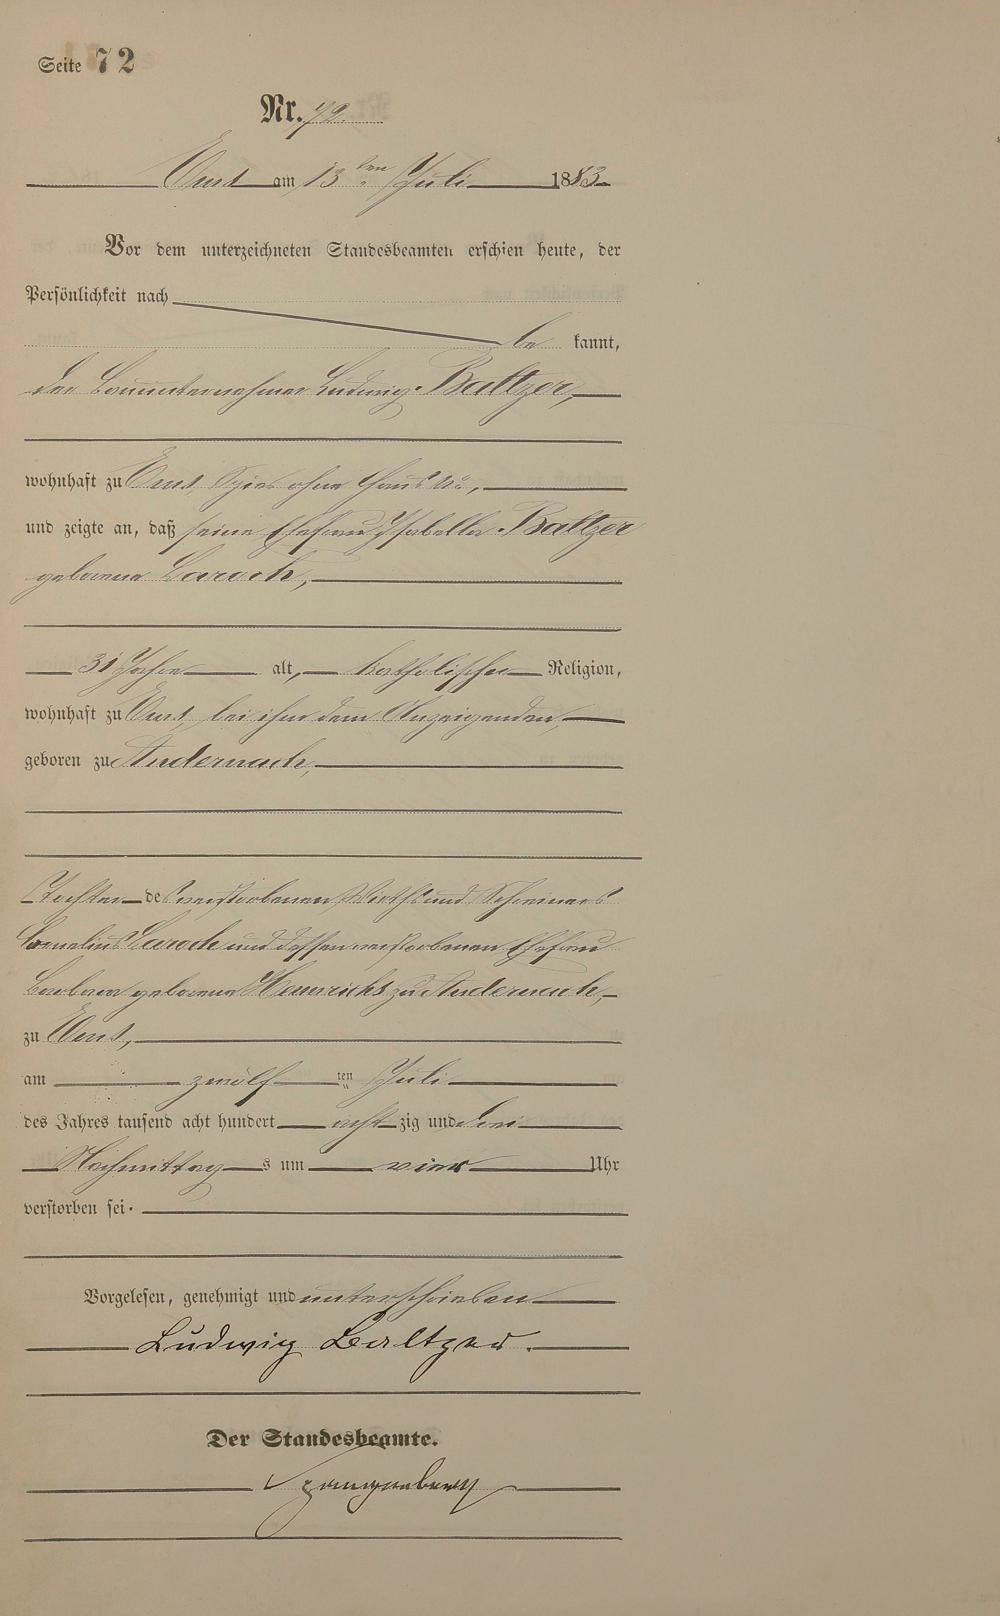 Seite 72
Nr. 72.
Ems am 13ten Juli 1883
Vor dem unterzeichneten Standesbeamten erschien heute, der
Persönlichkeit nach
be kannt,
der Bauunternehmer Ludwig Baltzer,
wohnhaft zu Ems, Spies ohne Haus No,
und zeigte an, daß seine Ehefrau Isabella Baltzer
geborene Laroch,
31 Jahre alt, katholischer Religion,
wohnhaft zu Ems bei ihm dem Anzeigenden,
geboren zu Andernach,
Tochter des verstorbenen Wirths und Schreiners
Cornelius Laroch und dessen verstorbenen Ehefrau
Barbara geborene Heinrichs zu Andernach,
zu Ems,
am zwölf ten Juli
des Jahres tausend acht hundert acht zig und drei
Nachmittag s um vier Uhr
verstorben sei.
Vorgelesen, genehmigt und unterschrieben
Ludwig Baltzer.
Der Standesbeamte.
Spangenberg